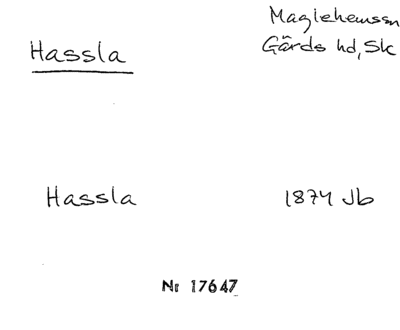 Hassla
Maglehemssn
Gärds hd, Sk
Hassla
1874 Jb
Nr 17647